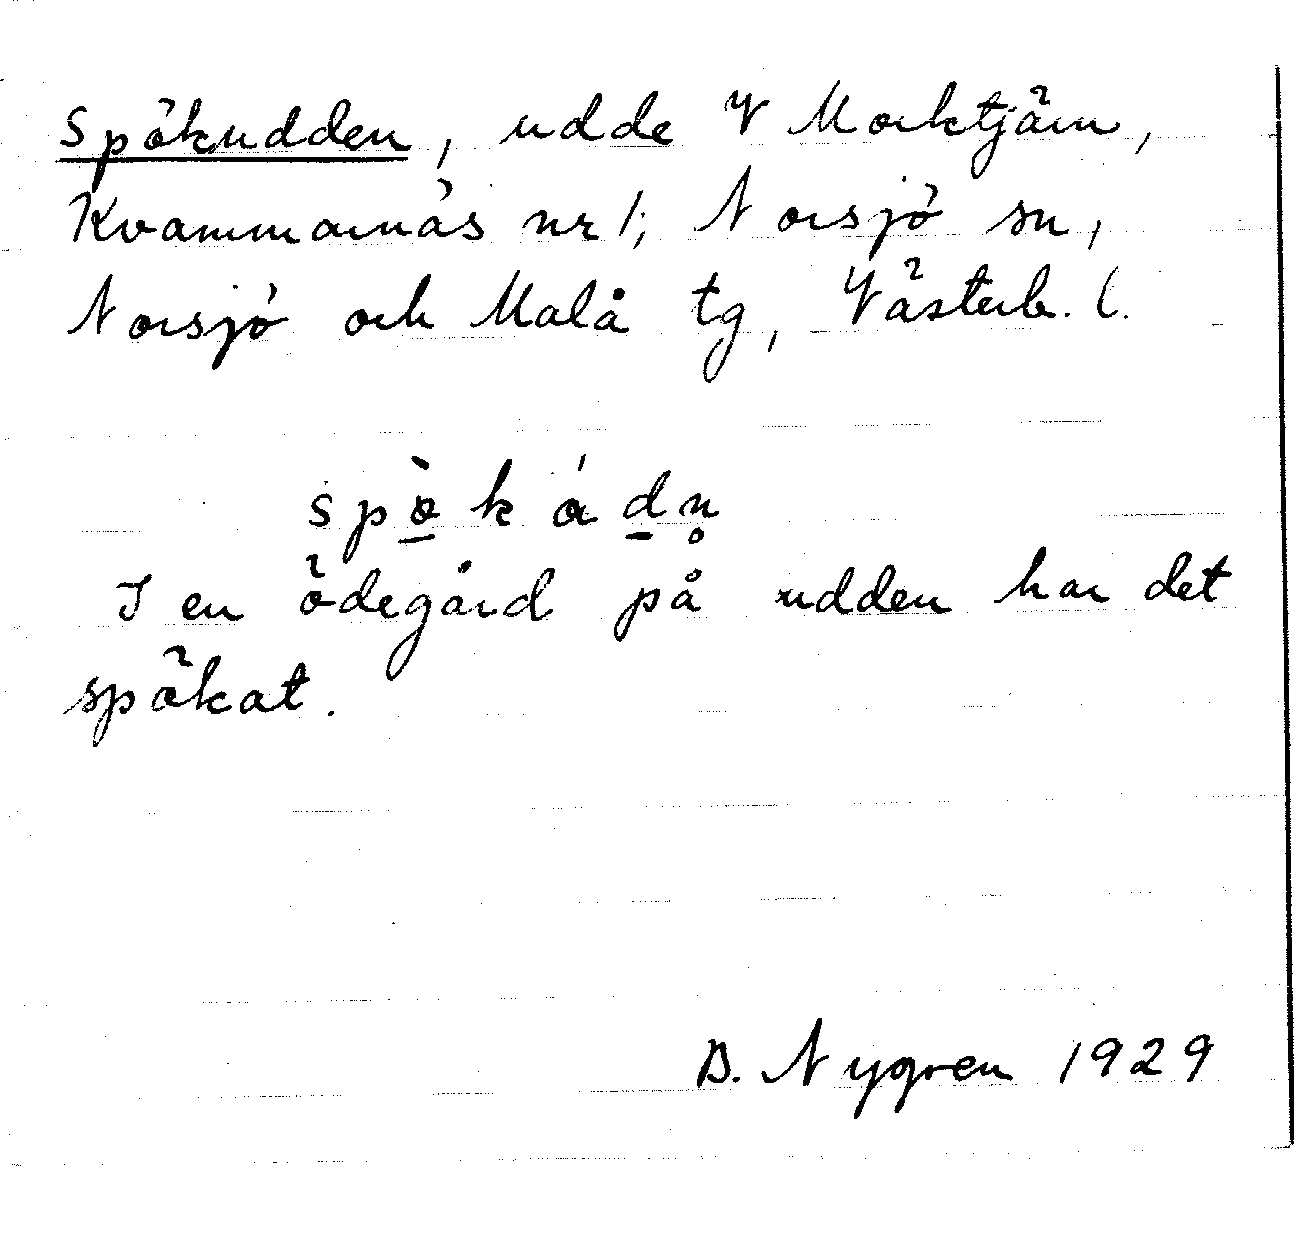 Spökudden, udde V Morktjärn,
Kvammarnäs nr 1, Norsjö sn,
Norsjö och Malå tg, Västerb. l.
I en ödegård på udden har det
spökat.
D. Nygren 1929